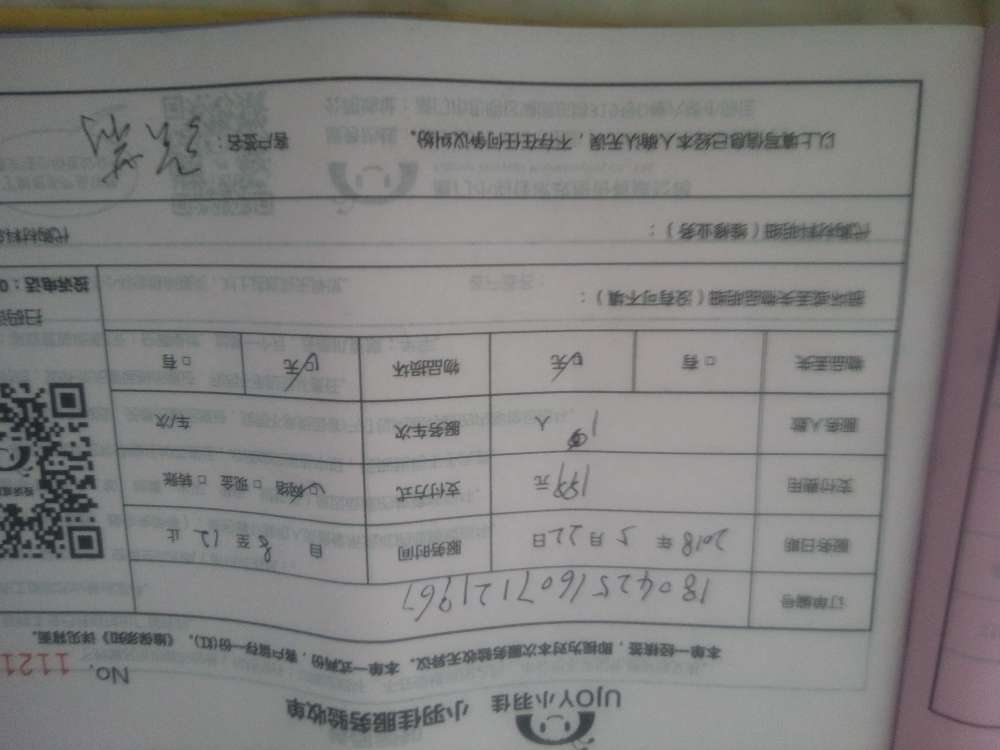 UJOY小羽佳 小羽佳服务验收单
No. 1121
本单一经接签，即视为对本次服务验收无异议。本单一式两份，客户留存一份(红)。《维保须知》详见背面。
订单编号 18042516071121967
服务日期 2018 年 5 月 22 日 服务时间 自 8 至 12 止
支付费用 199 元 支付方式 网络 □ 现金 □ 转账
服务人数 1 人 服务车次 车/次
物品丢失 □ 有 无 物品损坏 无 □ 有
损坏或丢失物品明细（没有可不填）：
扫码
投诉电话：0
代购材料明细（维修业务）：
代购材料
以上填写信息已经本人确认无误，不存在任何争议纠纷。 客户签名：